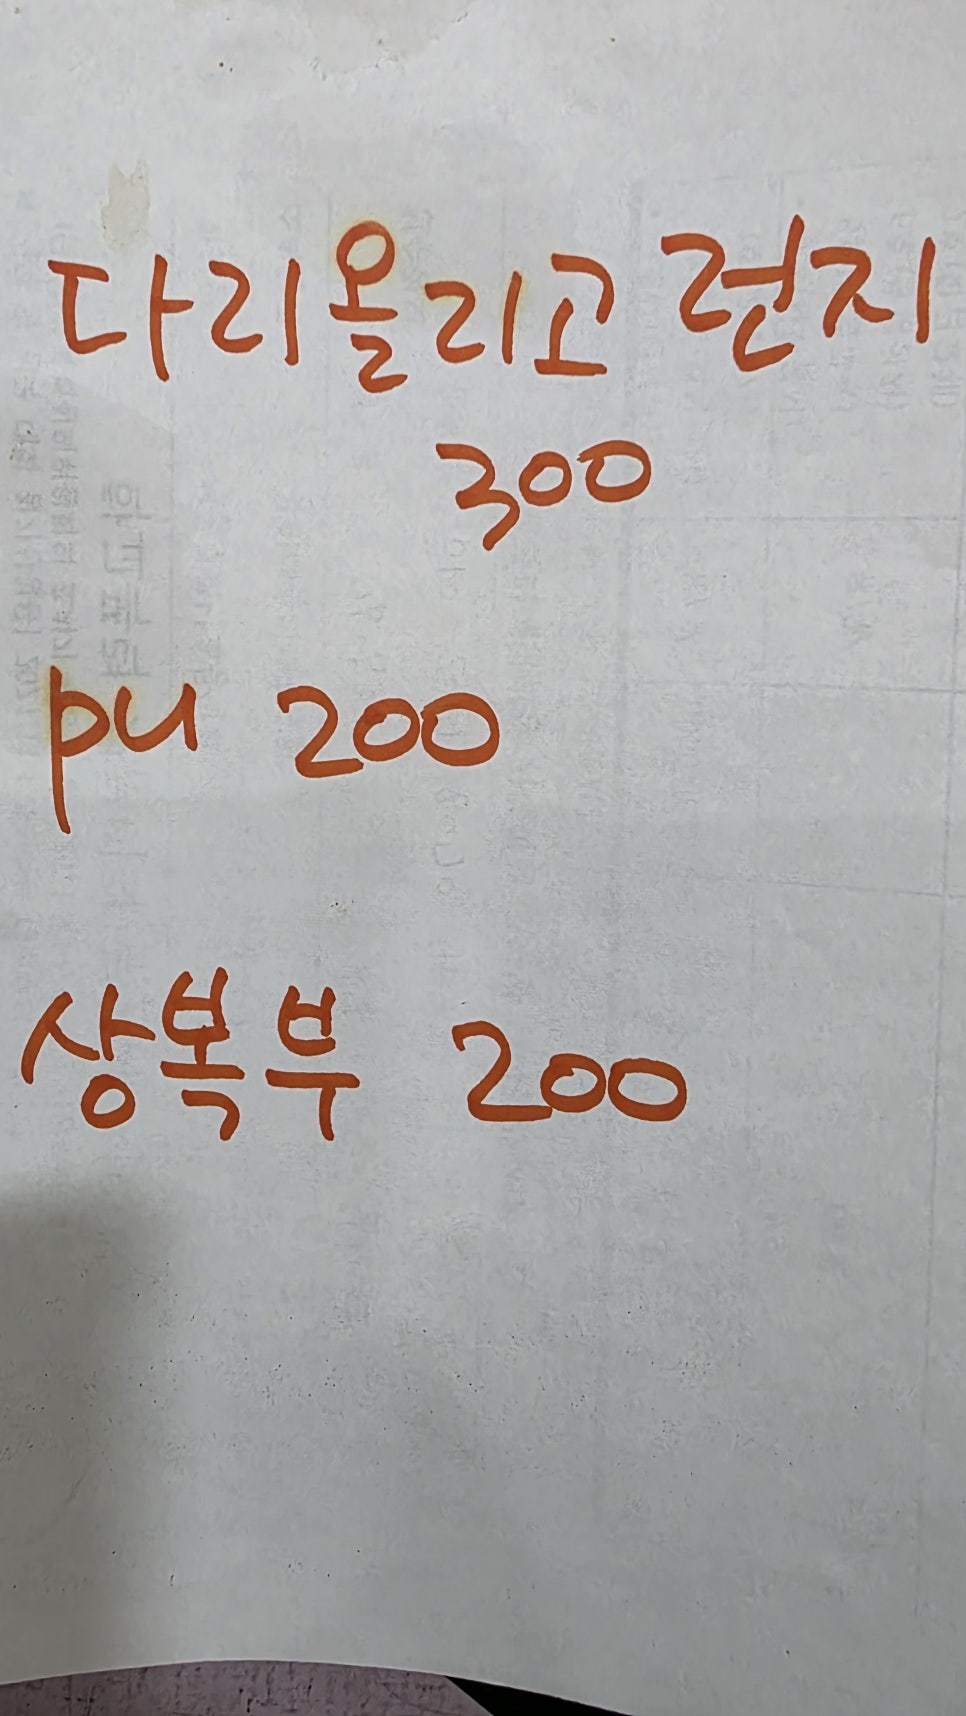 다리올리고 런지
300
pu 200
상복부 200